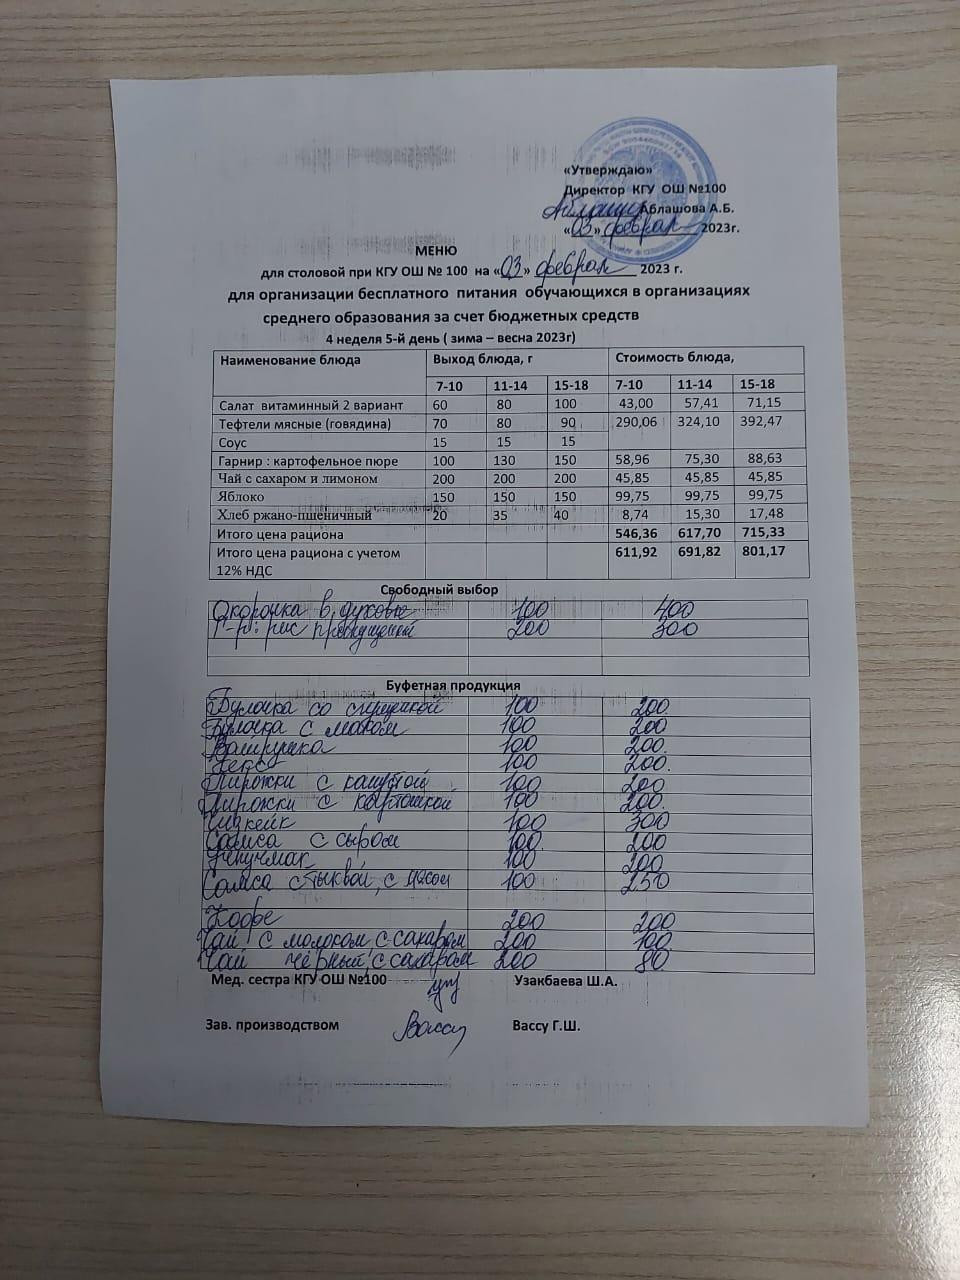 «Утверждаю»
Директор КГУ ОШ №100
Аблашова А.Б.
«03» феврал 2023г.
МЕНЮ
для столовой при КГУ ОШ № 100 на «03» феврал 2023 г.
для организации бесплатного питания обучающихся в организациях
среднего образования за счет бюджетных средств
4 неделя 5-й день ( зима – весна 2023г)
Наименование блюда Выход блюда, г Стоимость блюда,
7-10 11-14 15-18 7-10 11-14 15-18
Салат витаминный 2 вариант 60 80 100 43,00 57,41 71,15
Тефтели мясные (говядина) 70 80 90 290,06 324,10 392,47
Соус 15 15 15
Гарнир : картофельное пюре 100 130 150 58,96 75,30 88,63
Чай с сахаром и лимоном 200 200 200 45,85 45,85 45,85
Яблоко 150 150 150 99,75 99,75 99,75
Хлеб ржано-пшеничный 20 35 40 8,74 15,30 17,48
Итого цена рациона 546,36 617,70 715,33
Итого цена рациона с учетом 611,92 691,82 801,17
12% НДС
Свободный выбор
Окорочка в духовке 100 400
Г-р: рис 200 300
Буфетная продукция
Булочка со сгущенкой 100 200
Булочка с маком 100 200
Ватрушка 100 200.
Кекс 100 200.
Пирожки с капустой 100 200
Пирожки с картошкой 100 200.
Чизкейк 100 300
Самса с сыром 100 200
Учпучмак 100 200
Самса с тыквой, с мясом 100 250
Кофе 200 200
Чай с молоком с сахаром 200 100.
Чай чёрный с сахаром 200 80
Мед. сестра КГУ ОШ №100 Узакбаева Ш.А.
Зав. производством Вассу Вассу Г.Ш.